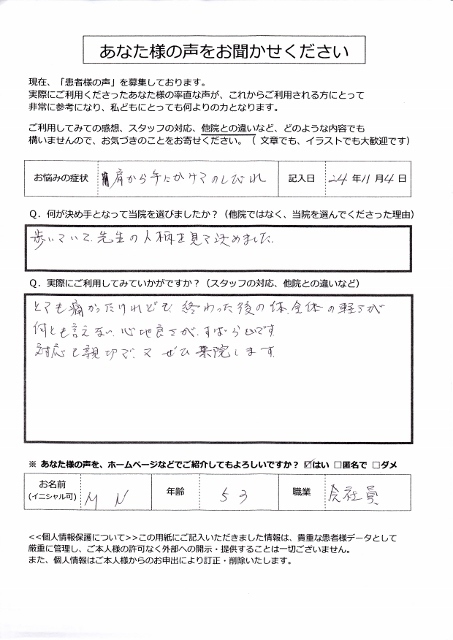 あなた様の声をお聞かせください
現在、「患者様の声」を募集しております。
実際にご利用くださったあなた様の率直な声が、これからご利用される方にとって
非常に参考になり、私どもにとっても何よりの力となります。
ご利用してみての感想、スタッフの対応、他院との違いなど、どのような内容でも
構いませんので、お気づきのことをお寄せください。（ 文章でも、イラストでも大歓迎です）
お悩みの症状 肩から手にかけてのしびれ 記入日 24年11月4日
Q．何が決め手となって当院を選びましたか？（他院ではなく、当院を選んでくださった理由）
歩いていて、先生の人柄を見て決めました。
Q．実際にご利用してみていかがですか？（スタッフの対応、他院との違いなど）
とても痛かったけれども、終わった後の体全体の軽さが
何とも言えない心地良さが、すばらしいです。
対応も親切で、又ぜひ来院します。
※ あなた様の声を、ホームページなどでご紹介してもよろしいですか？ ☑はい □匿名で □ダメ
お名前 (イニシャル可) M N 年齢 53 職業 会社員
<<個人情報保護について>>この用紙にご記入いただきました情報は、貴重な患者様データとして
厳重に管理し、ご本人様の許可なく外部への開示・提供することは一切ございません。
また、個人情報はご本人様からのお申出により訂正・削除いたします。